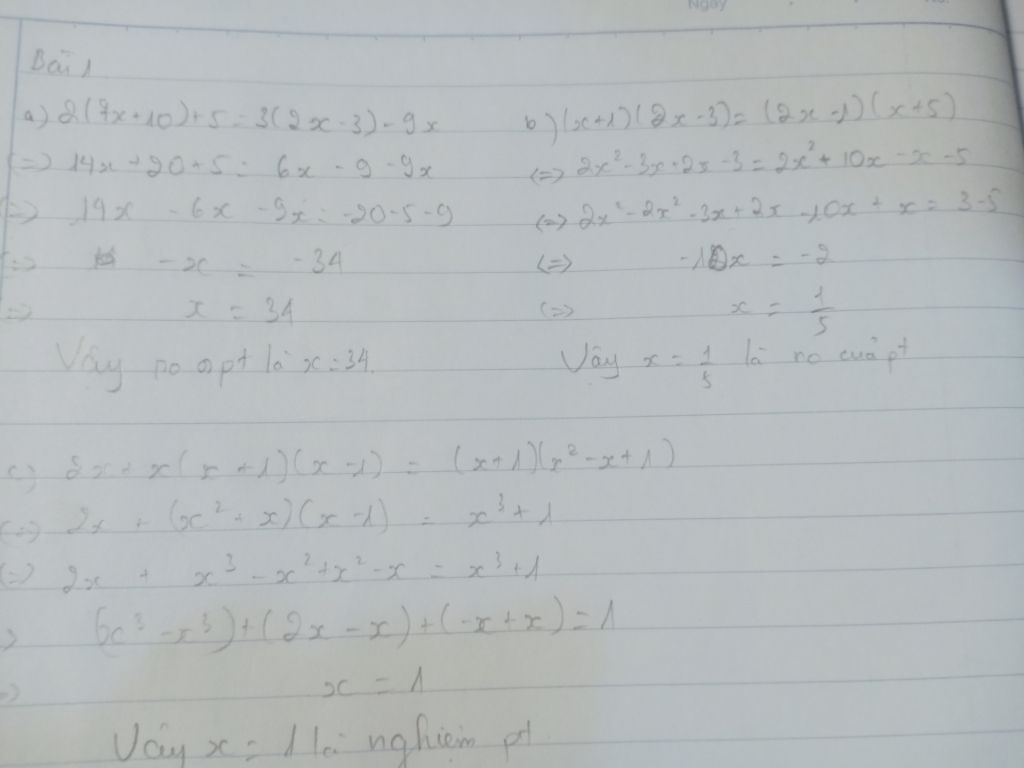 Ngày
Bài 1
a) 2(7x+10)+5=3(2x-3)-9x
(=) 14x+20+5= 6x-9-9x
(=) 14x -6x -9x= -20-5-9
(=) -x = -34
(=) x = 34
Vậy no of pt là x=34.
b) (x+1)(2x-3)=(2x-1)(x+5)
(=) 2x²-3x+2x-3=2x²+10x-x-5
(=) 2x²-2x²-3x+2x-10x+x=3-5
(=) -10x = -2
(=) x = 1/5
Vậy x = 1/5 là no của pt
c) 2x+x(x+1)(x-1) = (x+1)(x²-x+1)
(=) 2x + (x²+x)(x-1) = x³+1
(=) 2x + x³-x²+x²-x = x³+1
(x³-x³)+(2x-x)+(-x+x)=1
x = 1
Vậy x = 1 là nghiệm pt.